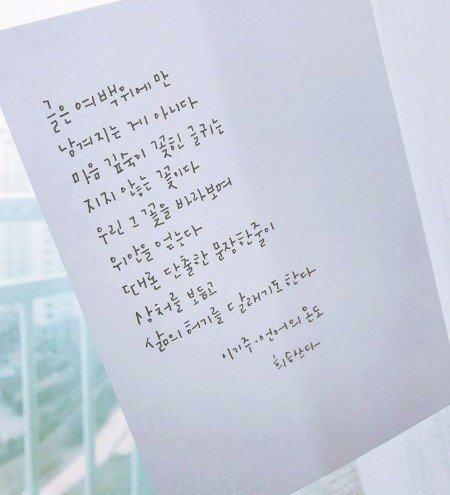 글은 여백위에만
남겨지는 게 아니다
마음 깊숙이 꽂힌 글귀는
지지 않는 꽃이다
우린 그 꽃을 바라보며
위안을 얻는다
때론 단출한 문장한줄이
상처를 보듬고
삶의 허기를 달래기도한다
이기주 · 언어의 온도